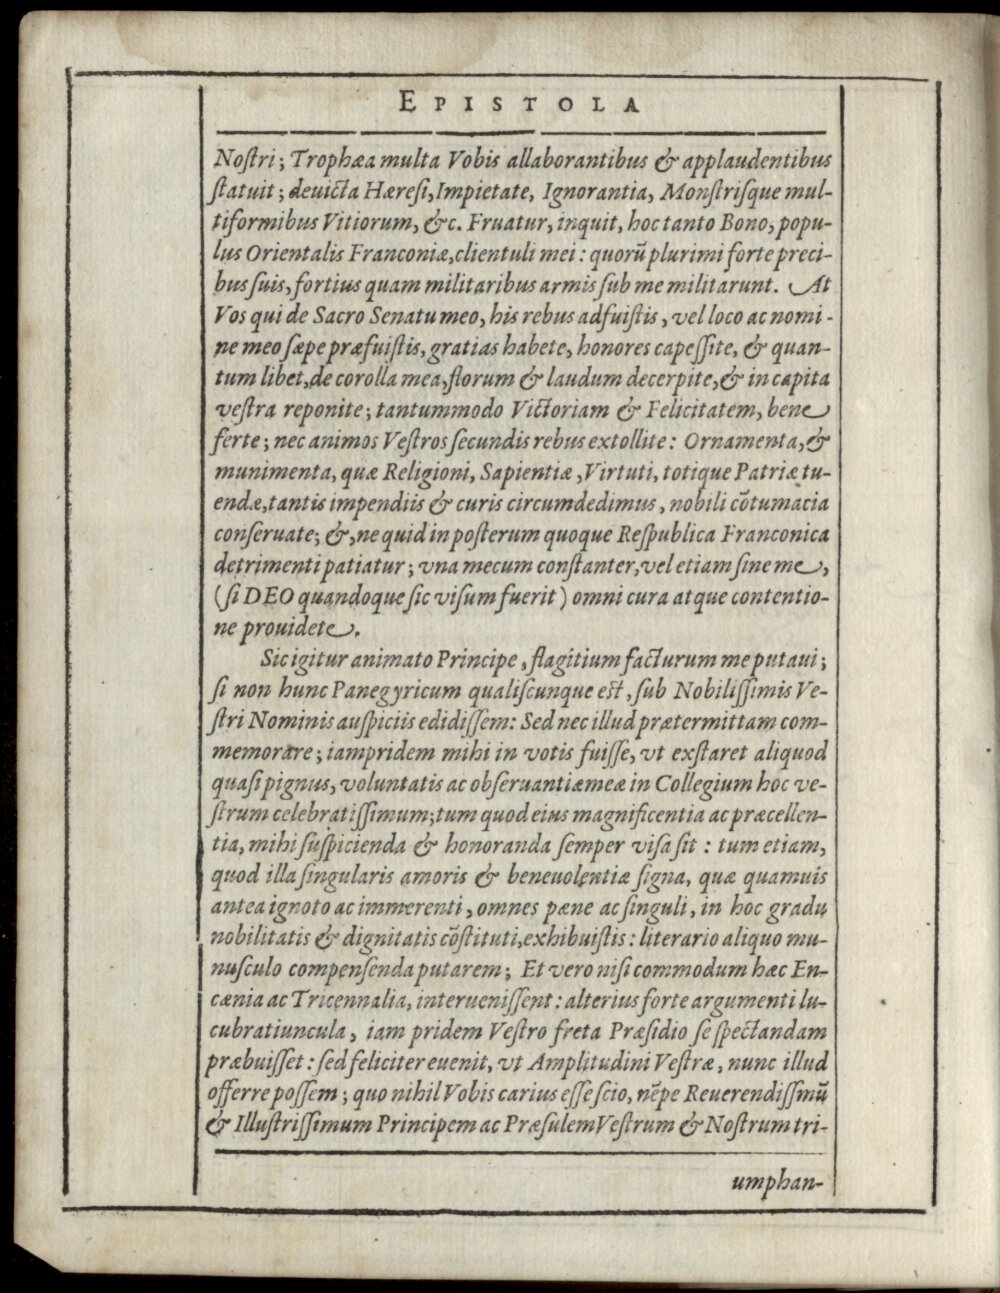 EPISTOLA
Noſtri; Trophæa multa Vobis allaborantibus & applaudentibus
ſtatuit; deuicta Hæreſi, Impietate, Ignorantia, Monſtriſque mul-
tiformibus Vitiorum, &c. Fruatur, inquit, hoc tanto Bono, popu-
lus Orientalis Franconiæ, clientuli mei: quorũ plurimi forte preci-
bus ſuis, fortius quam militaribus armis ſub me militarunt. At
Vos qui de Sacro Senatu meo, his rebus adfuiſtis, vel loco ac nomi-
ne meo ſæpe præfuiſtis, gratias habete, honores capeſſite, & quan-
tum libet, de corolla mea, florum & laudum decerpite, & in capita
veſtra reponite; tantummodo Victoriam & Felicitatem, bene
ferte; nec animos Veſtros ſecundis rebus extollite: Ornamenta, &
munimenta, quæ Religioni, Sapientiæ, Virtuti, totique Patriæ tu-
endæ, tantis impendiis & curis circumdedimus, nobili cõtumacia
conſeruate; &, ne quid in poſterum quoque Reſpublica Franconica
detrimenti patiatur; vna mecum conſtanter, vel etiam ſine me,
(ſi DEO quandoque ſic viſum fuerit) omni cura atque contentio-
ne prouidete.
Sic igitur animato Principe, flagitium facturum me putaui;
ſi non hunc Panegyricum qualiſcunque eſt, ſub Nobiliſſimis Ve-
ſtri Nominis auſpiciis edidiſſem: Sed nec illud prætermittam com-
memorare; iampridem mihi in votis fuiſſe, vt exſtaret aliquod
quaſi pignus, voluntatis ac obſeruantiæ meæ in Collegium hoc ve-
ſtrum celebratiſſimum; tum quod eius magnificentia ac præcellen-
tia, mihi ſuſpicienda & honoranda ſemper viſa ſit: tum etiam,
quod illa ſingularis amoris & beneuolentiæ ſigna, quæ quamuis
antea ignoto ac immerenti, omnes pæne ac ſinguli, in hoc gradu
nobilitatis & dignitatis cõſtituti, exhibuiſtis: literario aliquo mu-
nuſculo compenſenda putarem; Et vero niſi commodum hæc En-
cænia ac Tricennalia, interueniſſent: alterius forte argumenti lu-
cubratiuncula, iam pridem Veſtro freta Præſidio ſe ſpectandam
præbuiſſet: ſed feliciter euenit, vt Amplitudini Veſtræ, nunc illud
offerre poſſem; quo nihil Vobis carius eſſe ſcio, nẽpe Reuerendiſſmũ
& Illuſtriſſimum Principem ac Præſulem Veſtrum & Noſtrum tri-
umphan-